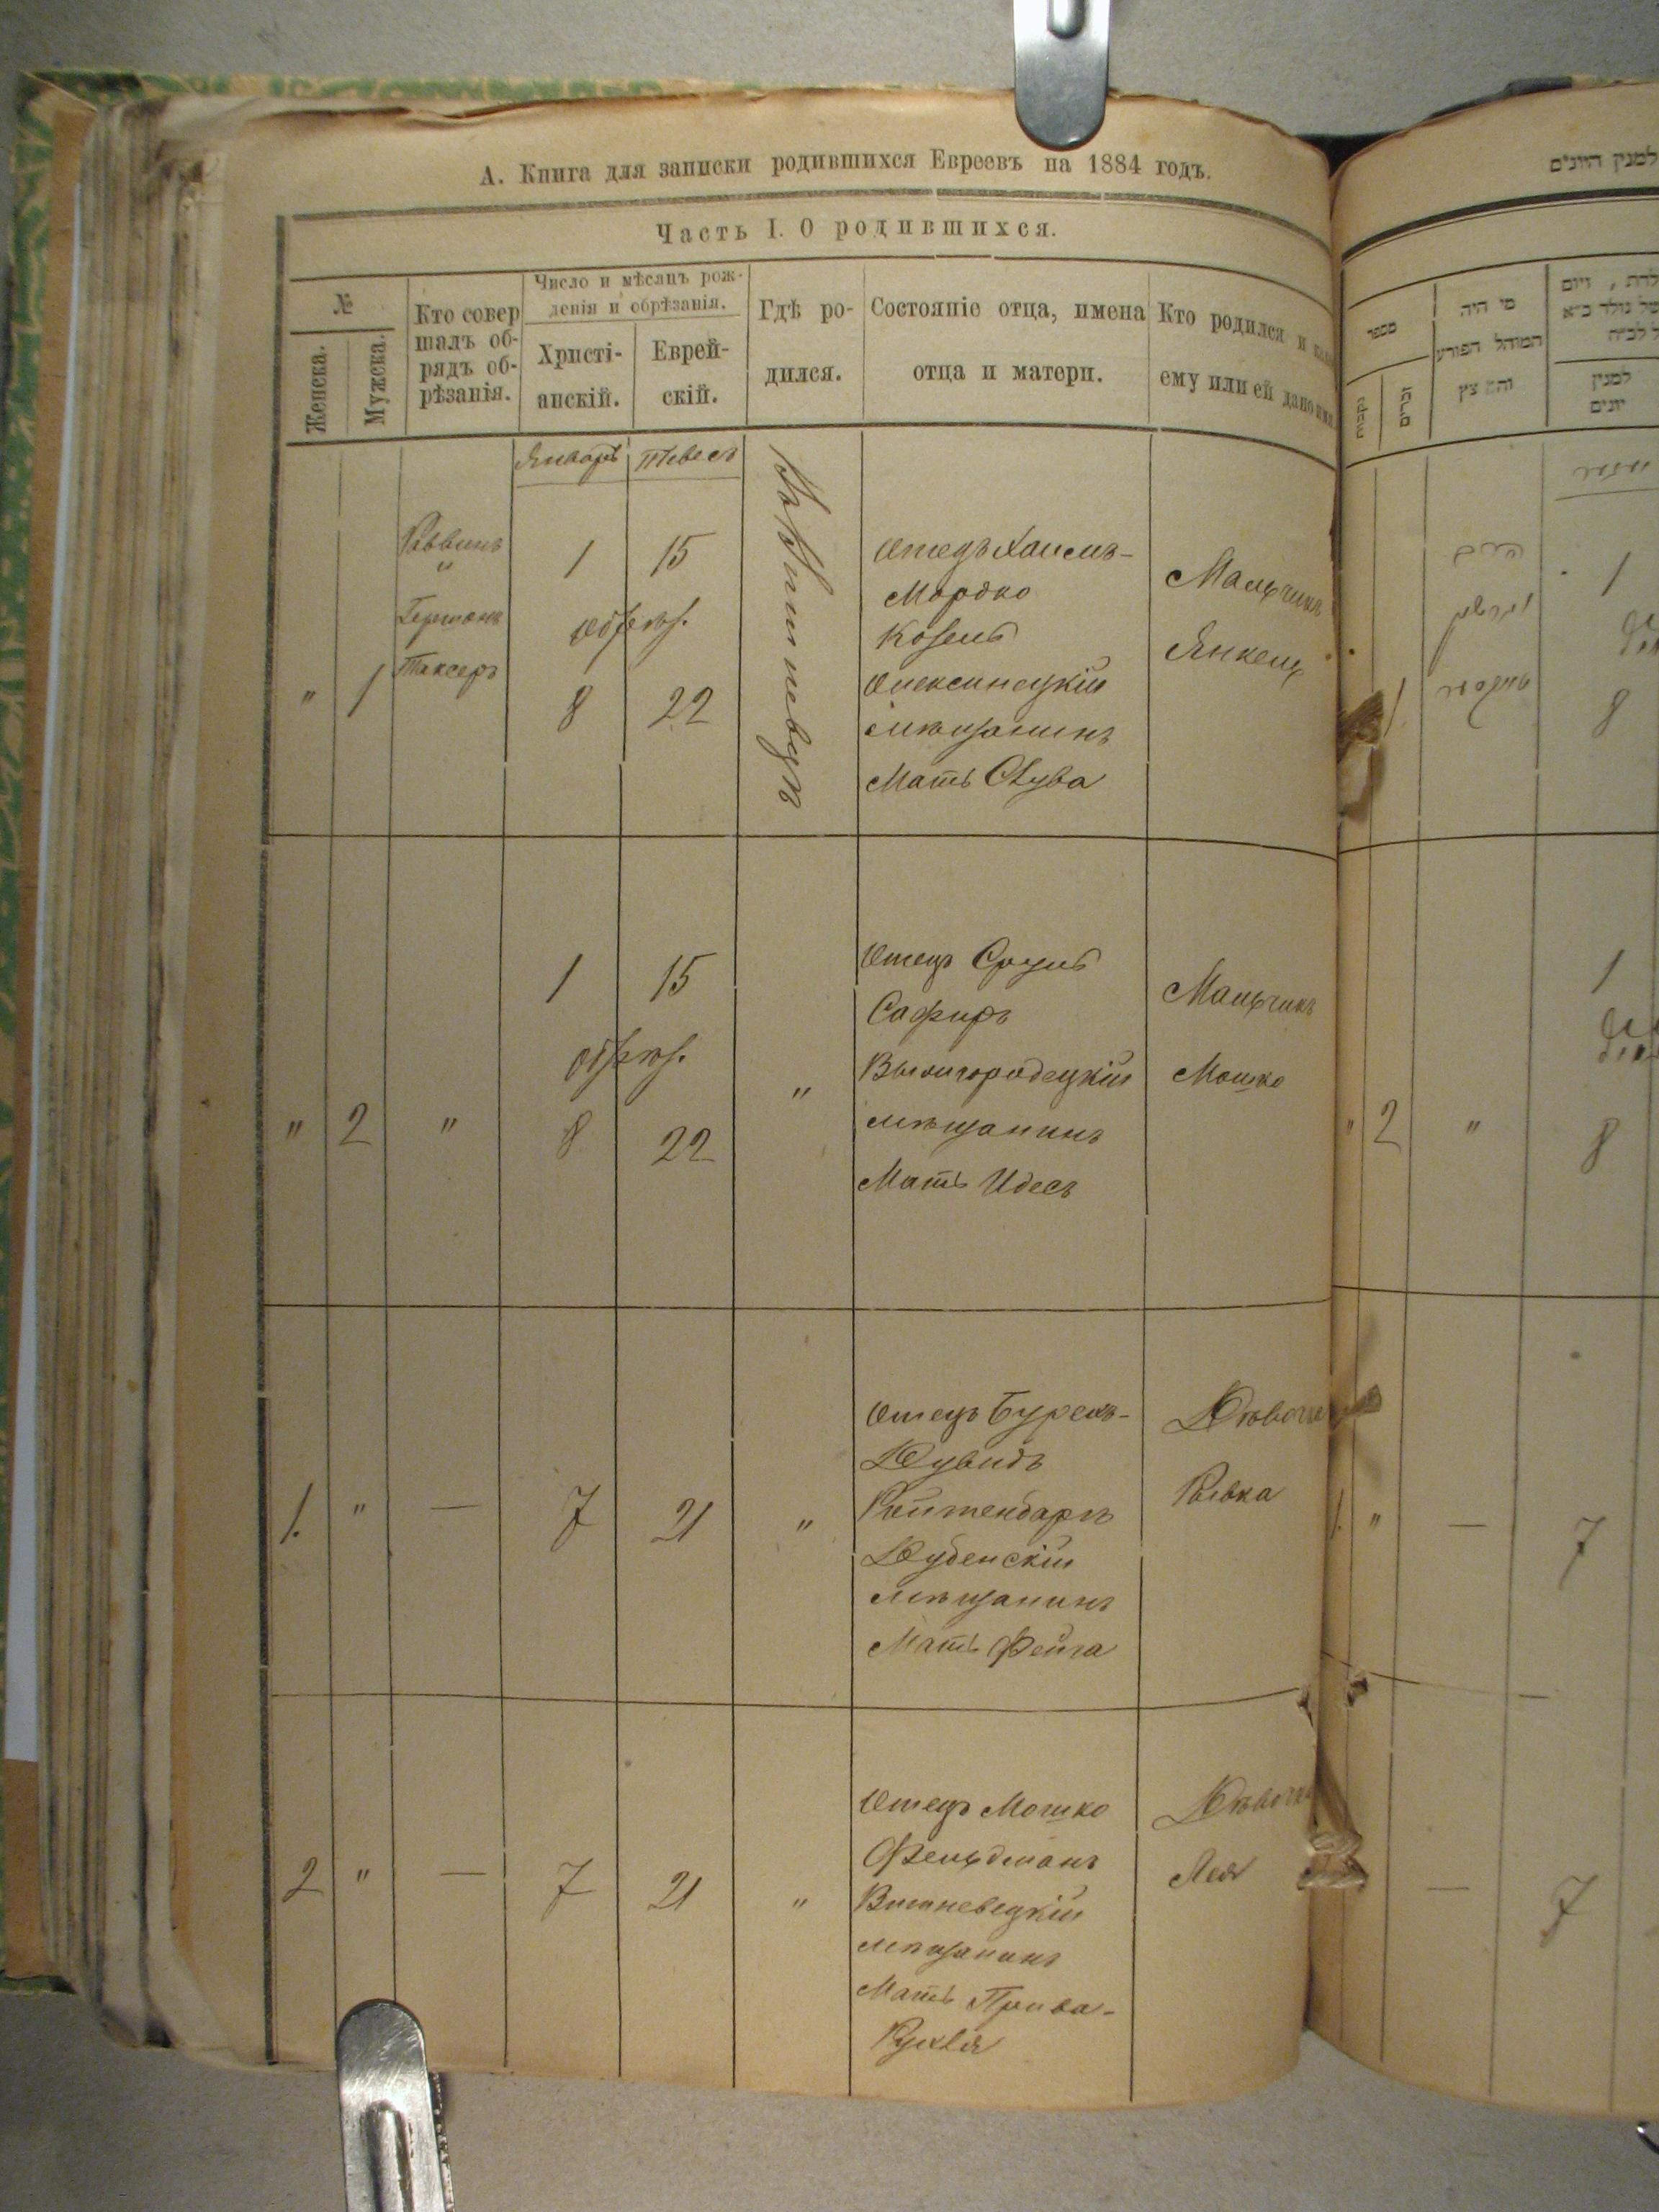 А. Книга для записки родившихся Евреевъ на 1884 годъ.
Часть I. О родившихся.
№
Женска.
Мужска.
Кто совер
шалъ об-
рядъ об-
рѣзанія.
Число и мѣсяцъ рож-
денія и обрѣзанія.
Христі-
анскій.
Еврей-
скій.
Гдѣ ро-
дился.
Состояніе отца, имена
отца и матери.
Кто родился и
ему или ей дано имя
Январь
Тевесъ
" 1
Раввинъ
"
Гершонъ
Таксеръ
1 15
обрѣз.
8 22
Вишневцѣ
Отецъ Хаимъ-
Мордко
Козелъ
Олексинецкій
мѣщанинъ
Мать Хува
Мальчикъ
Янкель
" 2 "
1 15
обрѣз.
8 22
"
Отецъ Сруль
Сафиръ
Вышгородецкій
мѣщанинъ
Мать Идесъ
Мальчикъ
Мошко
1. " — 7 21 "
Отецъ Бурехъ-
Дувидъ
Ройтенбаргъ
Дубенскій
мѣщанинъ
Мать Фейга
Дѣвочка
Ривка
2 " — 7 21 "
Отецъ Мошко
Фельдманъ
Вишневецкій
мѣщанинъ
Мать Прива-
Рухля
Дѣвочка
Лея
למנין היונים
מספר
נקבות
זכרים
מי היה
המוהל הפורע
למנין
יונים
1
8
1
" 2 "
8
1. " — 7
— 7